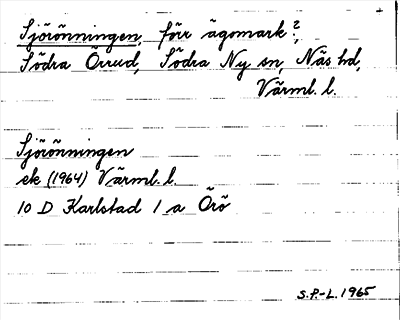 Sjörönningen, förr ägomark?,
Södra Örrud, Södra Ny sn, Näs hd,
Värml. l.
Sjörönningen
ek (1964) Värml. l.
10 D Karlstad 1 a Örö
S.P.-L. 1965